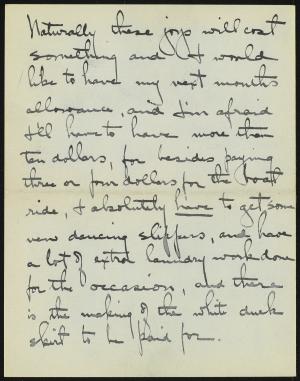 Naturally these joys will cost
something and I would
like to have my next months
allowance, and I'm afraid
I'll have to have more than
ten dollars, for besides paying
three or four dollars for the boat
ride, I absolutely have to get some
new dancing slippers, and have
a lot of extra laundry work done
for the occasion, and there
is the making of the white duck
skirt to be paid for.